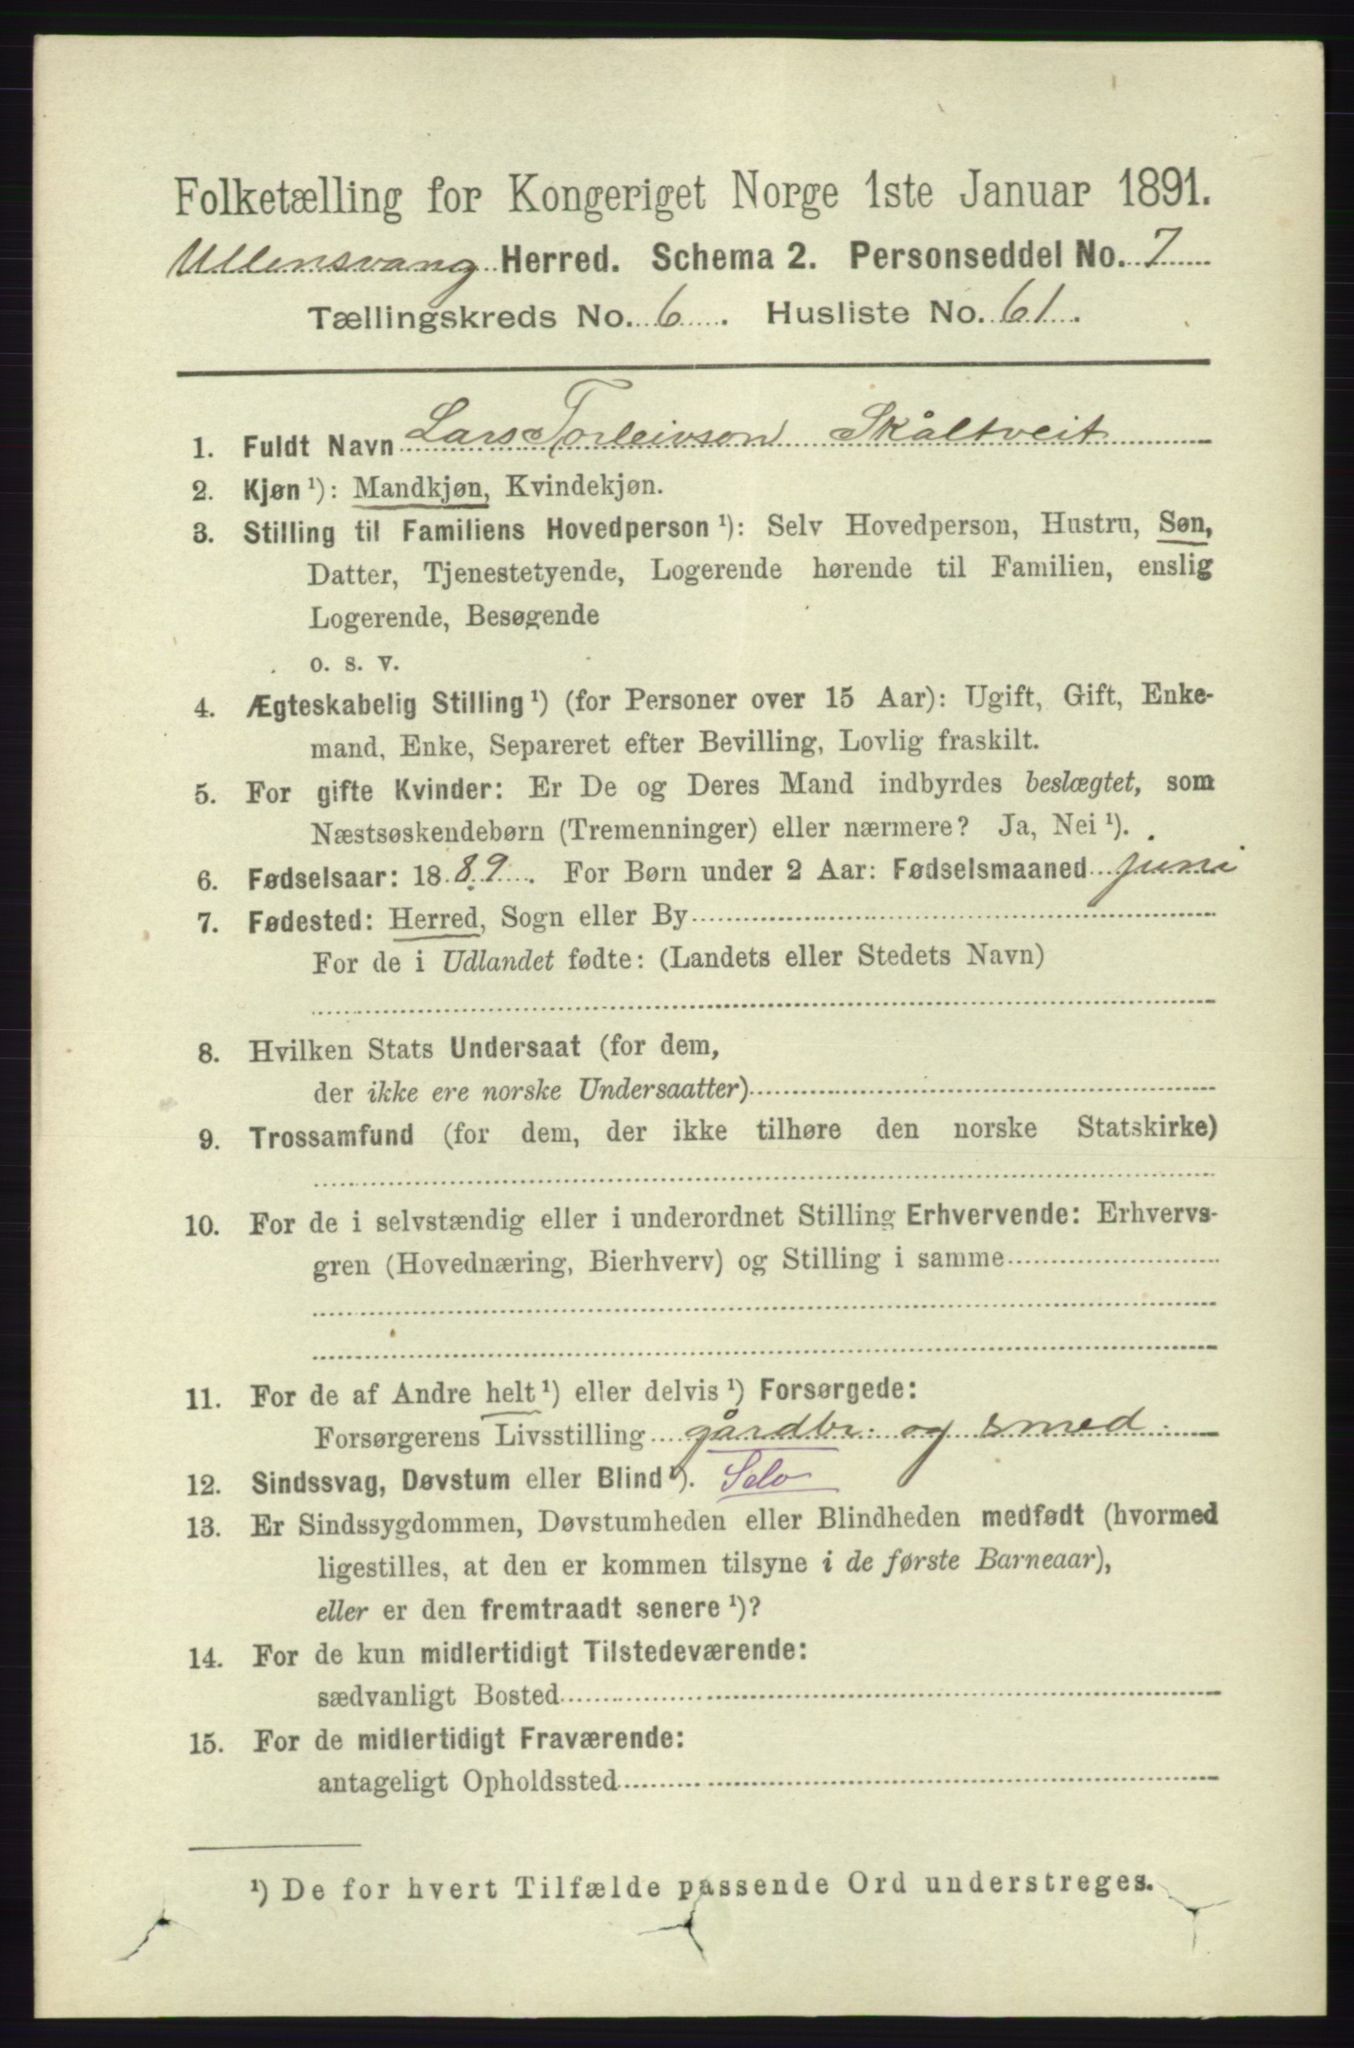 Folketælling for Kongeriget Norge 1ste Januar 1891.
Ullensvang Herred. Schema 2. Personseddel No. 7
Tællingskreds No. 6. Husliste No. 61.
1. Fuldt Navn Lars Torleivson Skåltveit
2. Kjøn ¹): Mandkjøn, Kvindekjøn.
3. Stilling til Familiens Hovedperson ¹): Selv Hovedperson, Hustru, Søn,
Datter, Tjenestetyende, Logerende hørende til Familien, enslig
Logerende, Besøgende
o. s. v.
4. Ægteskabelig Stilling ¹) (for Personer over 15 Aar): Ugift, Gift, Enke-
mand, Enke, Separeret efter Bevilling, Lovlig fraskilt.
5. For gifte Kvinder: Er De og Deres Mand indbyrdes beslægtet, som
Næstsøskendebørn (Tremenninger) eller nærmere? Ja, Nei ¹).
6. Fødselsaar: 1889. For Børn under 2 Aar: Fødselsmaaned juni
7. Fødested: Herred, Sogn eller By
For de i Udlandet fødte: (Landets eller Stedets Navn)
8. Hvilken Stats Undersaat (for dem,
der ikke ere norske Undersaatter)
9. Trossamfund (for dem, der ikke tilhøre den norske Statskirke)
10. For de i selvstændig eller i underordnet Stilling Erhvervende: Erhvervs-
gren (Hovednæring, Bierhverv) og Stilling i samme
11. For de af Andre helt ¹) eller delvis ¹) Forsørgede:
Forsørgerens Livsstilling gårdbr. og smed.
12. Sindssvag, Døvstum eller Blind ¹). Selv
13. Er Sindssygdommen, Døvstumheden eller Blindheden medfødt (hvormed
ligestilles, at den er kommen tilsyne i de første Barneaar),
eller er den fremtraadt senere ¹)?
14. For de kun midlertidigt Tilstedeværende:
sædvanligt Bosted
15. For de midlertidigt Fraværende:
antageligt Opholdssted
¹) De for hvert Tilfælde passende Ord understreges.